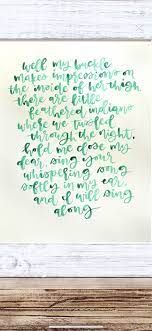 well my buckle
makes impressions on
the inside of her thigh
there are little
feathered indians
where we tussled
through the night.
hold me close my
dear, sing your
whispering song
softly in my ear,
and i will sing
along